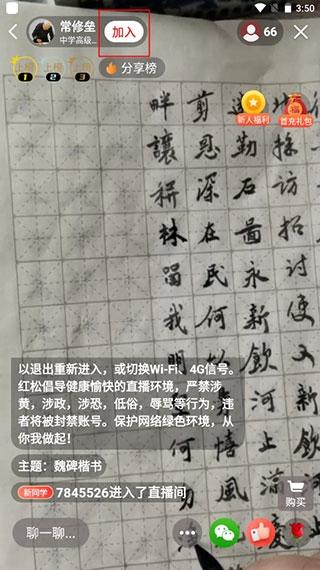 3:50
常修垒
中学高级...
加入
66
上榜 1
上榜 2
上榜 3
分享榜
新人福利
首充礼包
訪招討便又新
勤石面永新飲河止
剪恩深在民何
畔讓耕林留我明
以退出重新进入，或切换Wi-Fi、4G信号。
红松倡导健康愉快的直播环境，严禁涉
黄，涉政，涉恐，低俗，辱骂等行为，违
者将被封禁账号。保护网络绿色环境，从
你我做起！
主题：魏碑楷书
新同学 7845526进入了直播间
购买
聊一聊...